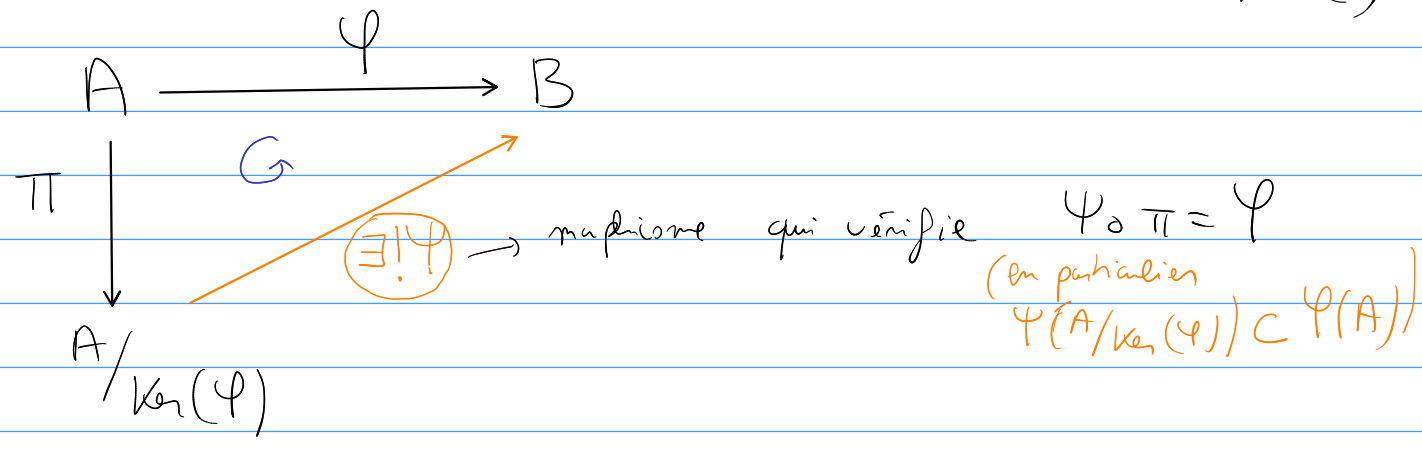 φ
A → B
π
∃!ψ → morphisme qui vérifie ψ∘π = φ
(en particulier
ψ(A/Ker(φ)) ⊂ φ(A))
A/Ker(φ)